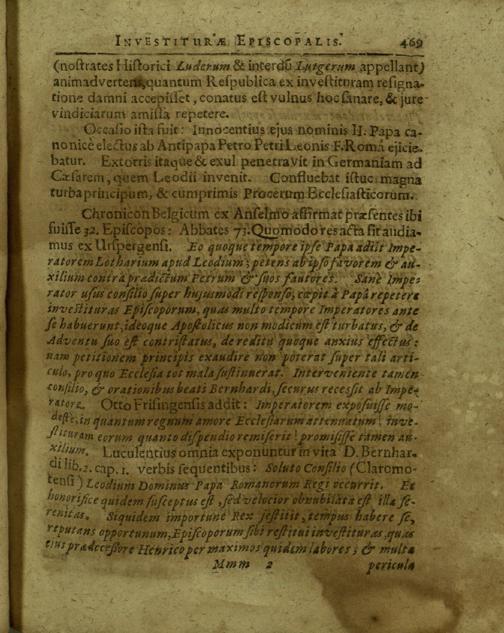 INVESTITURÆ EPISCOPALIS. 469
(nostrates Historici Luderum & interdũ Lutgerum appellant)
animadvertens, quantum Respublica ex investituram resigna-
tione damni accepisset, conatus est vulnus hoc sanare, & jure
vindiciarum amissa repetere.
Occasio ista fuit: Innocentius ejus nominis II. Papa ca-
nonicè electus ab Antipapa Petro Petri Leonis F. Româ ejicie-
batur. Extorris itaque & exul penetravit in Germaniam ad
Cæsarem, quem Leodii invenit. Confluebat istuc magna
turba principum, & cumprimis Procerum Ecclesiasticorum.
Chronicon Belgicum ex Anselmo affirmat præsentes ibi
fuisse 32. Episcopos: Abbates 73. Quomodo res acta sit audia-
mus ex Urspergensi. Eo quoque tempore ipse Papa adiit Impe-
ratorem Lotharium apud Leodium; petens ab ipso favorem & au-
xilium contra prædictum Petrum & suos fautores. Sanè Impe-
rator usus consilio super hujusmodi responso, cœpit à Papa repetere
investituras Episcoporum, quas multo tempore Imperatores ante
se habuerunt, ideoque Apostolicus non modicum est turbatus, & de
Adventu suo est contristatus, de reditu quoque anxius effectus:
nam petitionem principis exaudire non poterat super tali arti-
culo, pro quo Ecclesia tot mala sustinuerat. Interveniente tamen
consilio, & orationibus beati Bernhardi, securus recessit ab Impe-
ratore. Otto Frisingensis addit: Imperatorem exposuisse mo-
destè, in quantum regnum amore Ecclesiarum attenuatum, inve-
stituram eorum quanto dispendio remiserit promisisse tamen au-
xilium. Luculentius omnia exponuntur in vita D. Bernhar-
di lib. 2. cap. 1. verbis sequentibus: Soluto Consilio (Claromo-
tensi) Leodium Dominus Papa Romanorum Regi occurrit. Et
honorifice quidem susceptus est, sed velocior obnubilata est illa se-
renitas. Siquidem importunè Rex institit, tempus habere se,
reputans opportunum, Episcoporum sibi restitui investituras, quas
ejus prædecessore Henrico per maximos quidem labores; & multa
Mmm 2 pericula